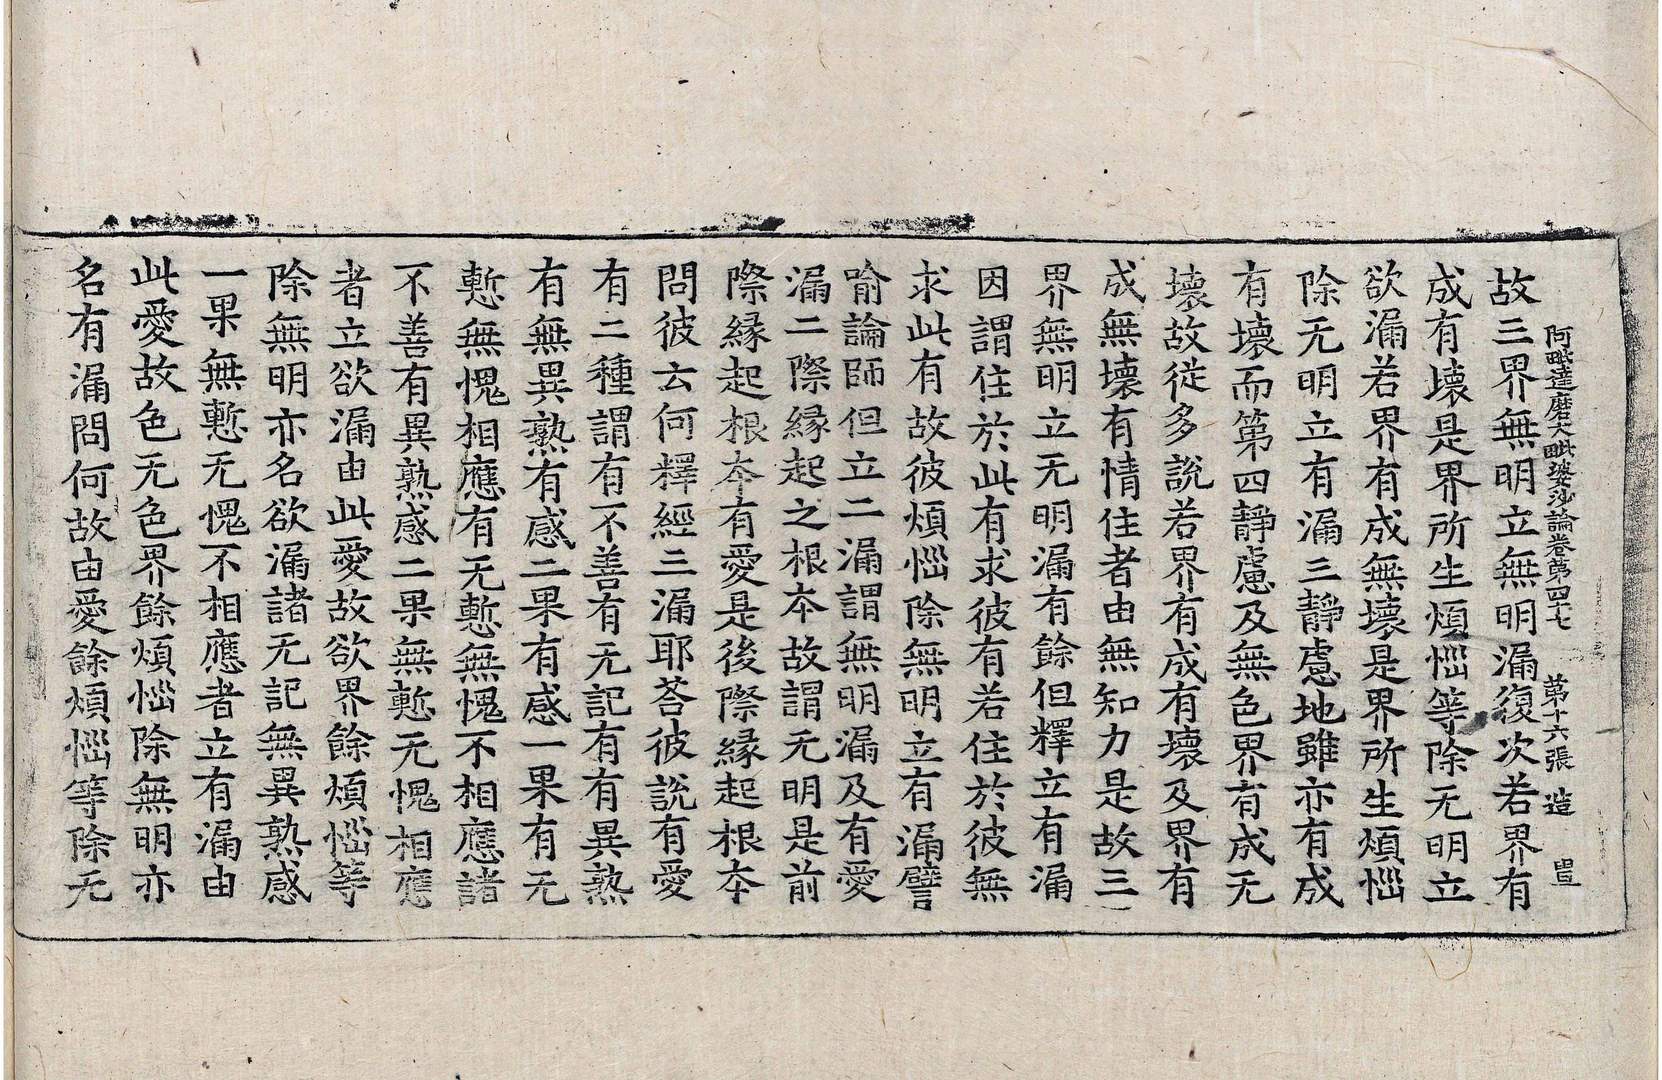 阿毗達磨大毗婆沙論卷第四十七　第十六張　造
故三界無明立無明漏復次若界有
成有壞是界所生煩惱等除无明立
欲漏若界有成無壞是界所生煩惱
除无明立有漏三靜慮地雖亦有成
有壞而第四靜慮及無色界有成无
壞故從多說若界有成有壞及界有
成無壞有情住者由無知力是故三
界無明立无明漏有餘但釋立有漏
因謂住於此有求彼有若住於彼無
求此有故彼煩惱除無明立有漏譬
喻論師但立二漏謂無明漏及有愛
漏二際緣起之根本故謂无明是前
際緣起根本有愛是後際緣起根本
問彼云何釋經三漏耶荅彼說有愛
有二種謂有不善有无記有有異熟
有無異熟有感二果有感一果有无
慙無愧相應有无慙無愧不相應諸
不善有異熟感二果無慙无愧相應
者立欲漏由此愛故欲界餘煩惱等
除無明亦名欲漏諸无記無異熟感
一果無慙无愧不相應者立有漏由
此愛故色无色界餘煩惱除無明亦
名有漏問何故由愛餘煩惱等除无